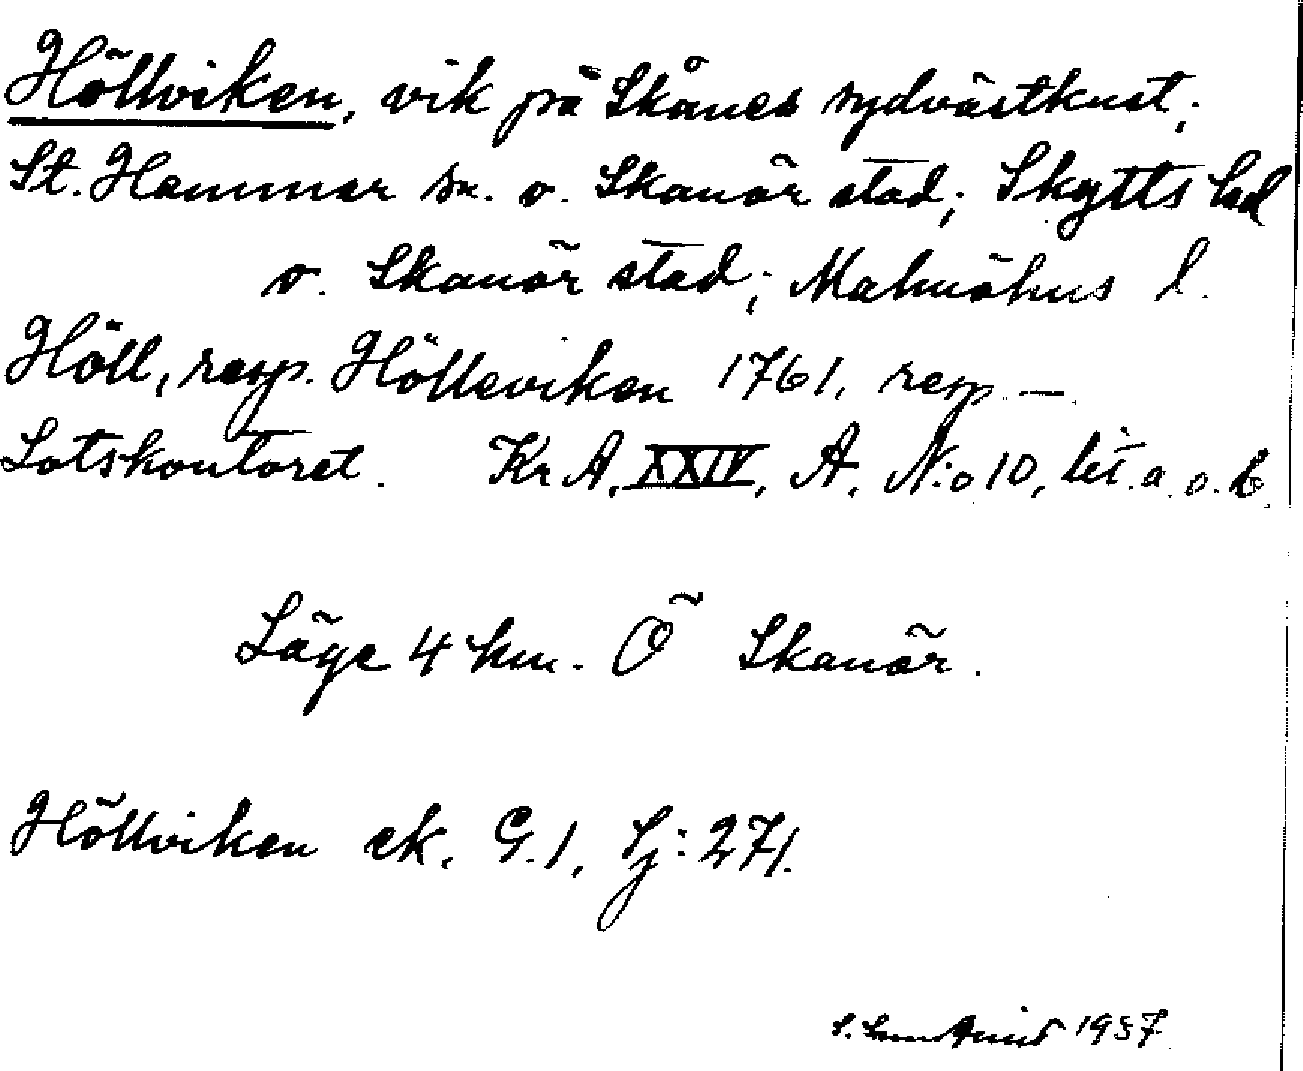 Höllviken, vik på Skånes sydvästkust;
St. Hammar sn. o. Skanör stad; Skytts hd
o. Skanör stad; Malmöhus l.
Höll, resp. Hölleviken 1761, resp. —.
Lotskontoret. Kr A, XXIV, A, N:o 10, lit. a. o. b.
Läge 4 km. Ö Skanör.
Höllviken ek. G.1, Sj: 271.
S. 1937